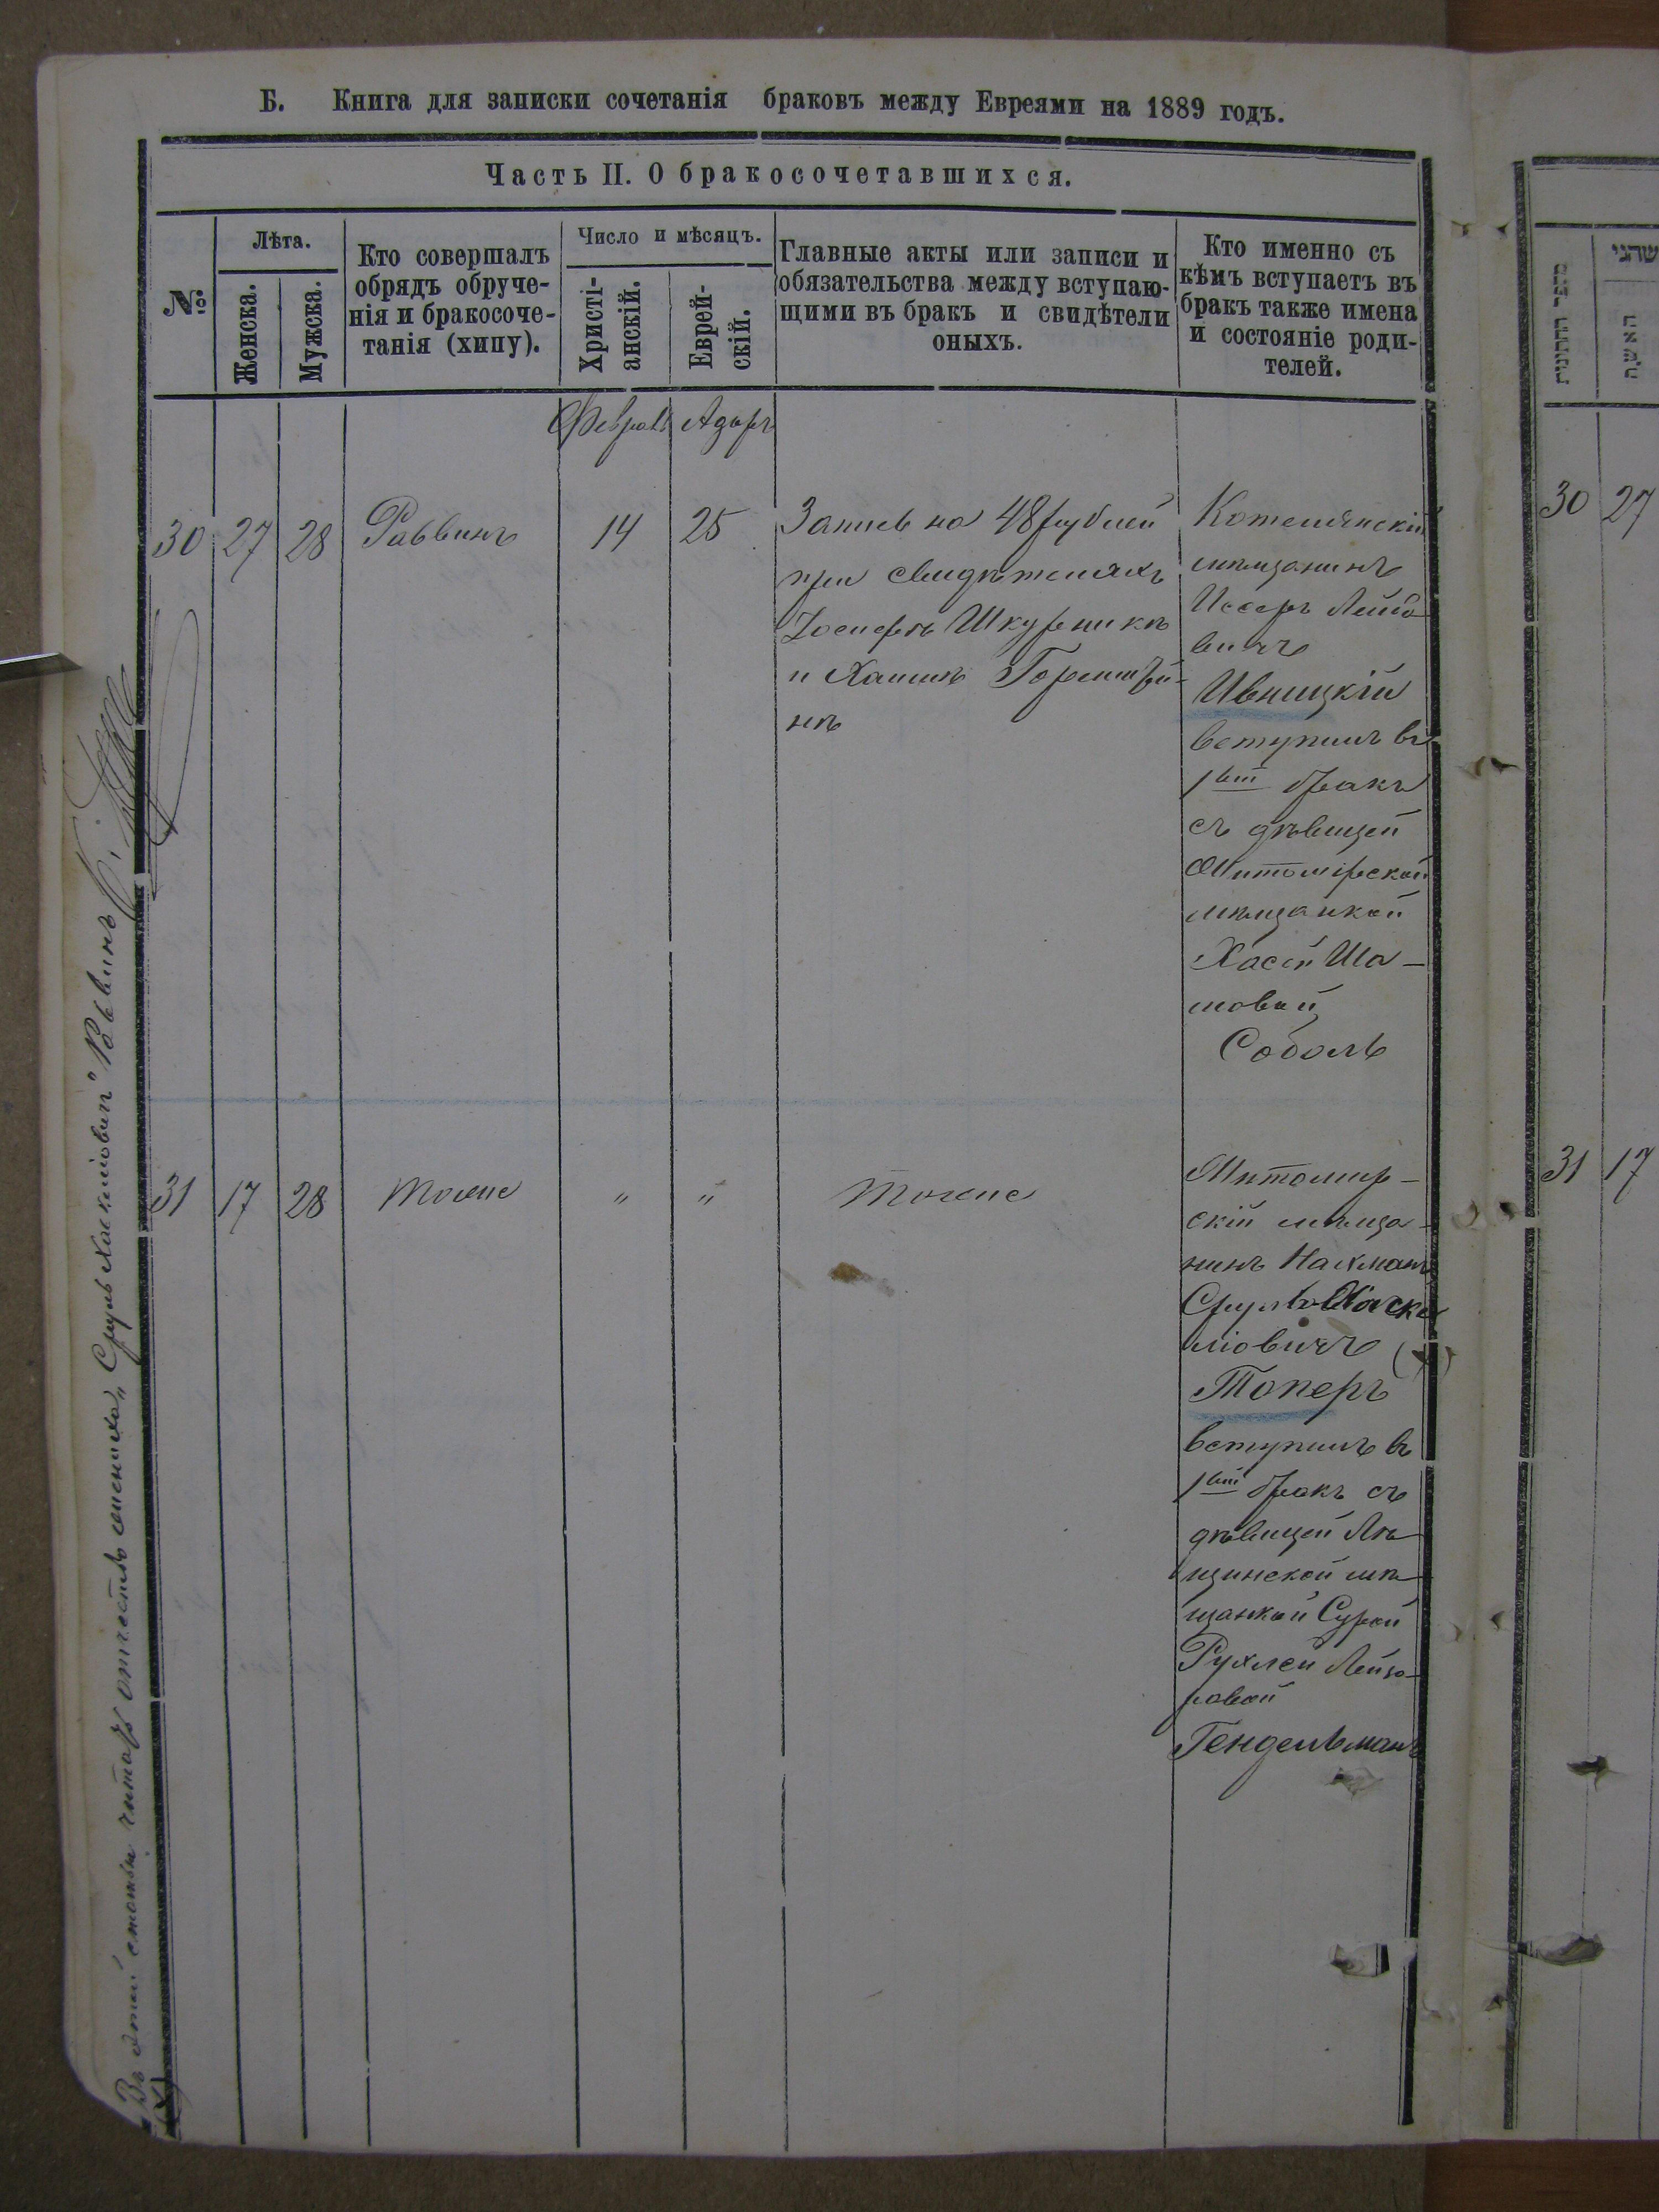 Б. Книга для записки сочетанія браковъ между Евреями на 1889 годъ.
Часть II. О бракосочетавшихся.
№
Лѣта.
Женска.
Мужска.
Кто совершалъ
обрядъ обруче-
нія и бракосоче-
танія (хипу).
Число и мѣсяцъ.
Христі-
анскій.
Еврей-
скій.
Главные акты или записи и
обязательства между вступаю-
щими въ бракъ и свидѣтели
оныхъ.
Кто именно съ
кѣмъ вступаетъ въ
бракъ также имена
и состояніе роди-
телей.
Февраль Адаръ
30 27 28 Раввинъ 14 25
Запись на 48 рублей
при свидѣтеляхъ
Іосифѣ Шкурникѣ
и Хаимѣ
нѣ
Котелянскій
мѣщанинъ
Иссеръ Лейбо
вичъ
Ивницкій
вступилъ въ
1вый бракъ
съ дѣвицей
Житомірской
мѣщанкой
Хасей Шо-
мовой
Соболь
31 17 28 Тоже " " Тоже
Житомир-
скій мѣща-
нинъ Нахманъ
Сруль Хаске
ліовичъ (х)
Топеръ
вступилъ въ
1вый бракъ съ
дѣвицей Лѣ
щинской мѣ
щанкой Сурой
Рухлей Лейзо-
ровой
Гендельманъ
(х) Въ этой статьѣ читать отчество жениха „Сруль Хаскліовичъ" Раввинъ
30 27
31 17
האשה